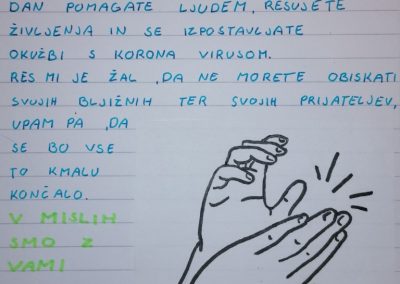 DAN POMAGATE LJUDEM, REŠUJETE
ŽIVLJENJA IN SE IZPOSTAVLJATE
OKUŽBI S KORONA VIRUSOM.
RES MI JE ŽAL, DA NE MORETE OBISKATI
SVOJIH BLJIŽNIH TER SVOJIH PRIJATELJEV,
UPAM PA, DA
SE BO VSE
TO KMALU
KONČALO.
V MISLIH
SMO Z
VAMI